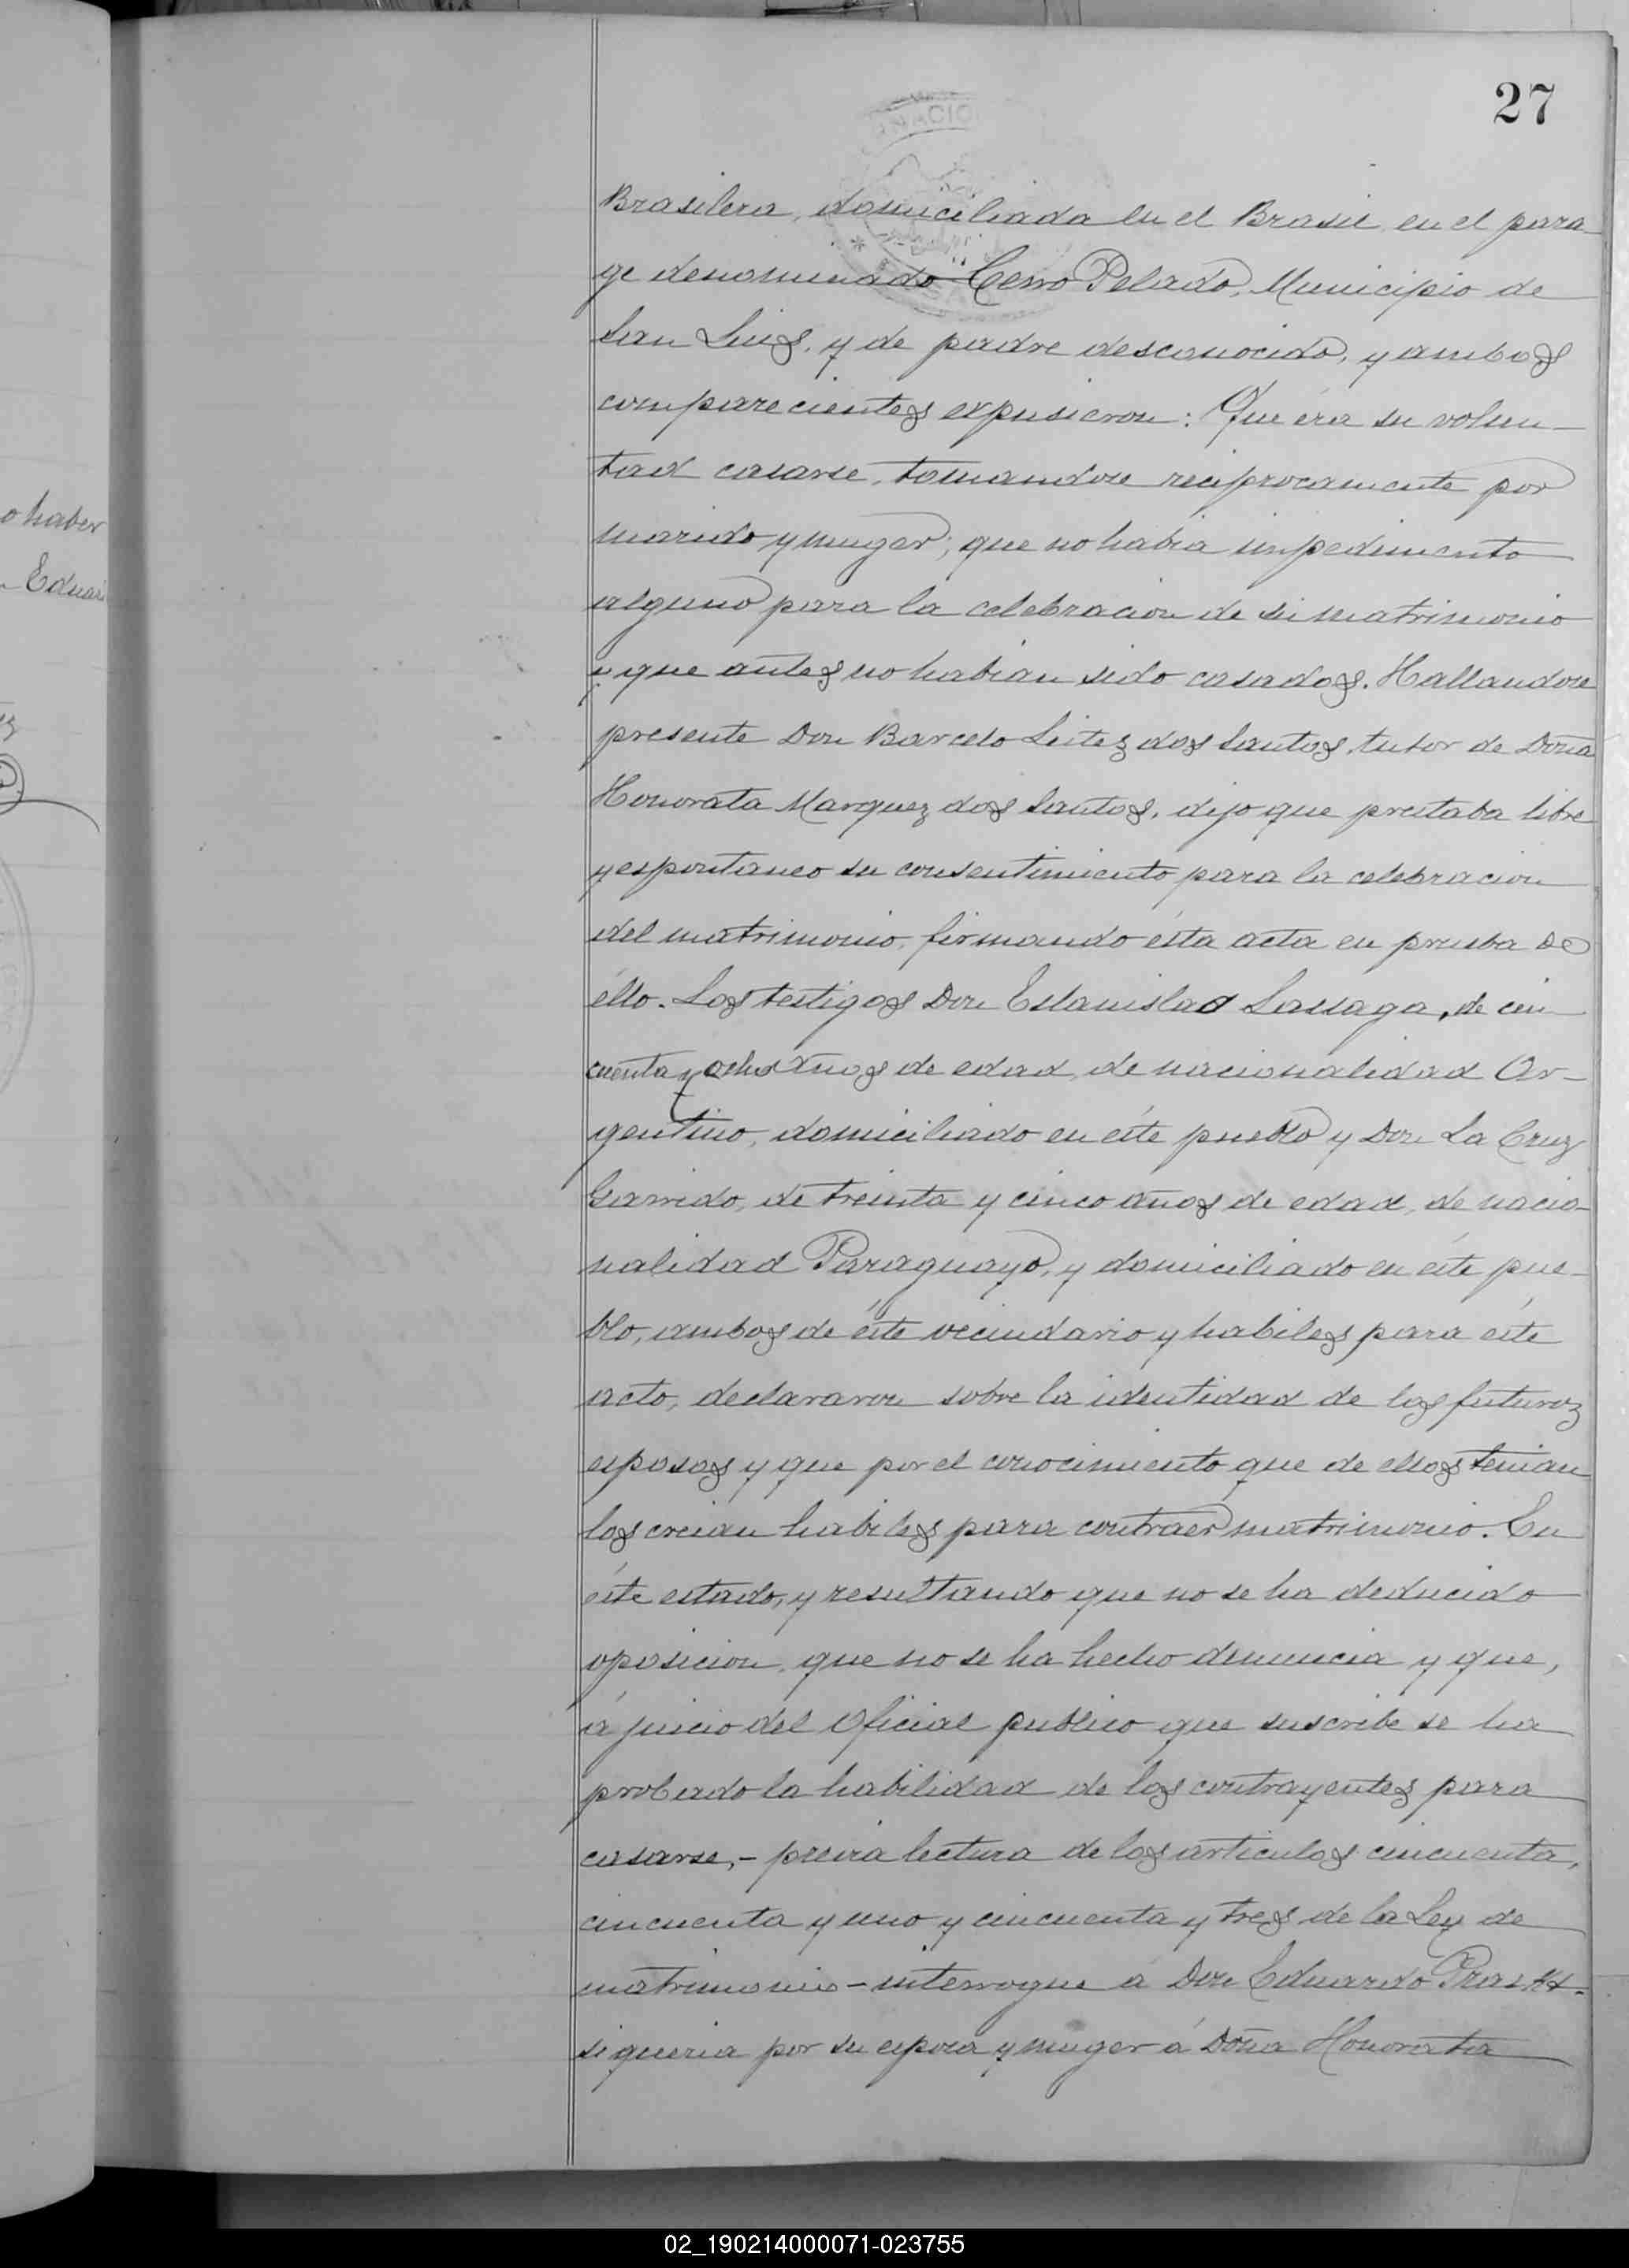 27
NACIO
Brasilera, domiciliada en el Brasil en el para-
ge denominado Cerro Pelado, Municipio de
San Luis, y de padre desconocido, y ambos
comparecientes expusieron: Que éra su volun-
tad casarse, tomandose reciprocamente por
marido y muger; que no habia impedimento
alguno para la celebracion de su matrimonio
y que antes no habian sido casados. Hallandose
presente Don Barcelo Leites dos Santos, tutor de Doña
Honorata Marquez dos Santos, dijo que prestaba libre
y espontaneo su consentimiento para la celebracion
del matrimonio, firmando ésta acta en prueba de
éllo. Los testigos Don Estanislao Lassaga, de cin
cuenta y ocho años de edad, de nacionalidad Ar-
gentino, domiciliado en éste pueblo y Don La Cruz
Garrido, de treinta y cinco años de edad, de nacio-
nalidad Paraguayo, y domiciliado en éste pue-
blo, ambos de éste vecindario y habiles para éste
acto, declararon sobre la identidad de los futuros
esposos y que por el conocimiento que de ellos tenian
los creian habiles para contraer matrimonio. En
éste estado, y resultando que no se ha deducido
oposicion, que no se ha hecho denuncia y que,
á juicio del Oficial publico que suscribe se ha
probado la habilidad de los contrayentes para
casarse,- previa lectura de los articulos cincuenta,
cincuenta y uno y cincuenta y tres de la Ley de
matrimonio - interrogue á Don Eduardo
si queria por su esposa y muger á Doña Honorata
o haber
Eduar
02_190214000071-023755